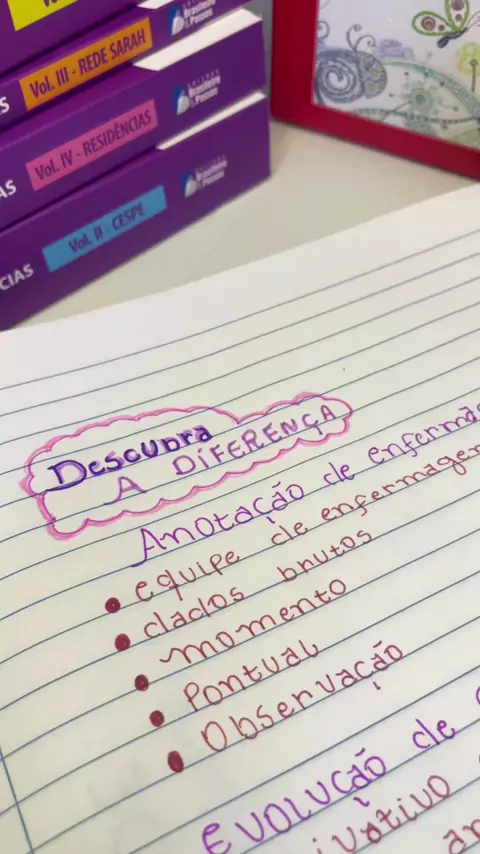 Vol. III - REDE SARAH
Vol. IV - RESIDÊNCIAS
Brasileiro
& Passos
Vol. II - CESPE
CIAS
Descubra
A DIFERENÇA
Anotação de
equipe de enfermagem
dados brutos
momento
Pontual
Observação
EVOLUÇÃO de